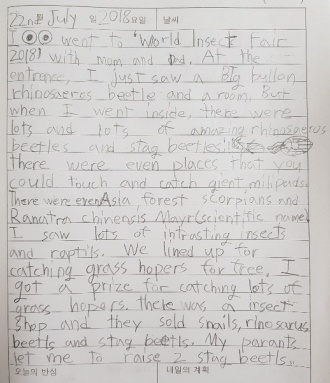 22nd July 일 2018 요일 날씨
I went to 'World Insect Fair
2018' with mom and Dad. At the
entrence, I just saw a BIg bullon
rhinosaeros beetle and a room. But
when I went inside, there were
lots and lots of amazing rhinosaeros
beetles and stag beetles!
there were even places that you
could touch and catch gient milipads.
There were even Asia forest scorpians and
Ranatra chinensis Mayr(scientific name)
I saw lots of intrasting insects
and raptils. We lined up for
catching grass hopers for free. I
got a prize for catching lots of
grass hopers. there was a insect
shop and they sold snails, rinosarus
beetls and stag beetls. My parants
let me to raise 2 stag beetls..
오늘의 반성 내일의 계획